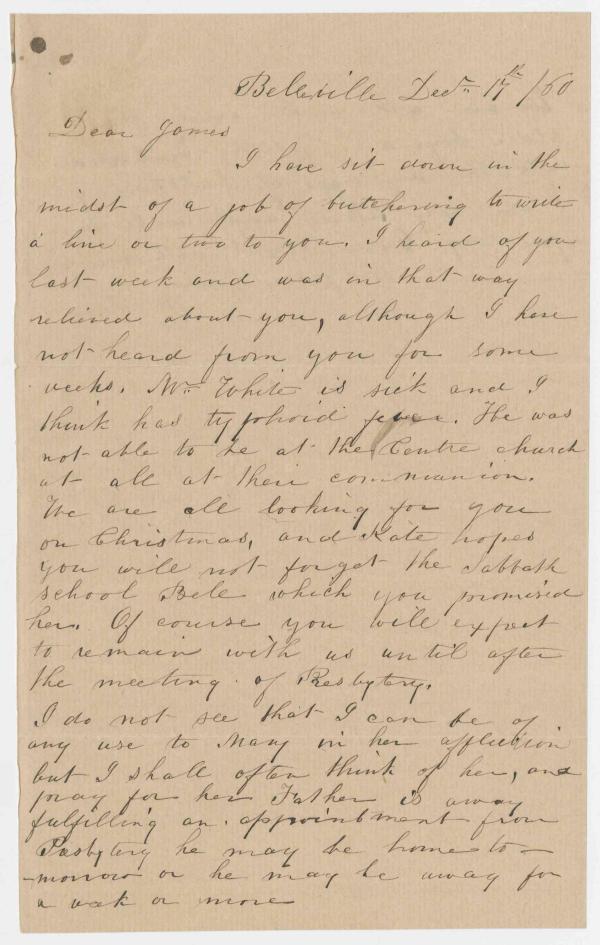 Belleville Decr 17th /60
Dear James
I have sit down in the
midst of a job of butchering to write
a line or two to you. I heard of you
last week and was in that way
relieved about you, although I have
not heard from you for some
weeks. Mr White is sick and I
think has typhoid fever. He was
not able to be at the Centre church
at all at their communion.
We are all looking for you
on Christmas, and Kate hopes
you will not forget the Sabbath
school Bell which you promised
her. Of course you will expect
to remain with us until after
the meeting of Presbytery.
I do not see that I can be of
any use to Mary in her affliction
but I shall often think of her, and
pray for her Father is away
fulfilling an appointment from
Presbytery he may be home to-
-morrow or he may be away for
a week or more